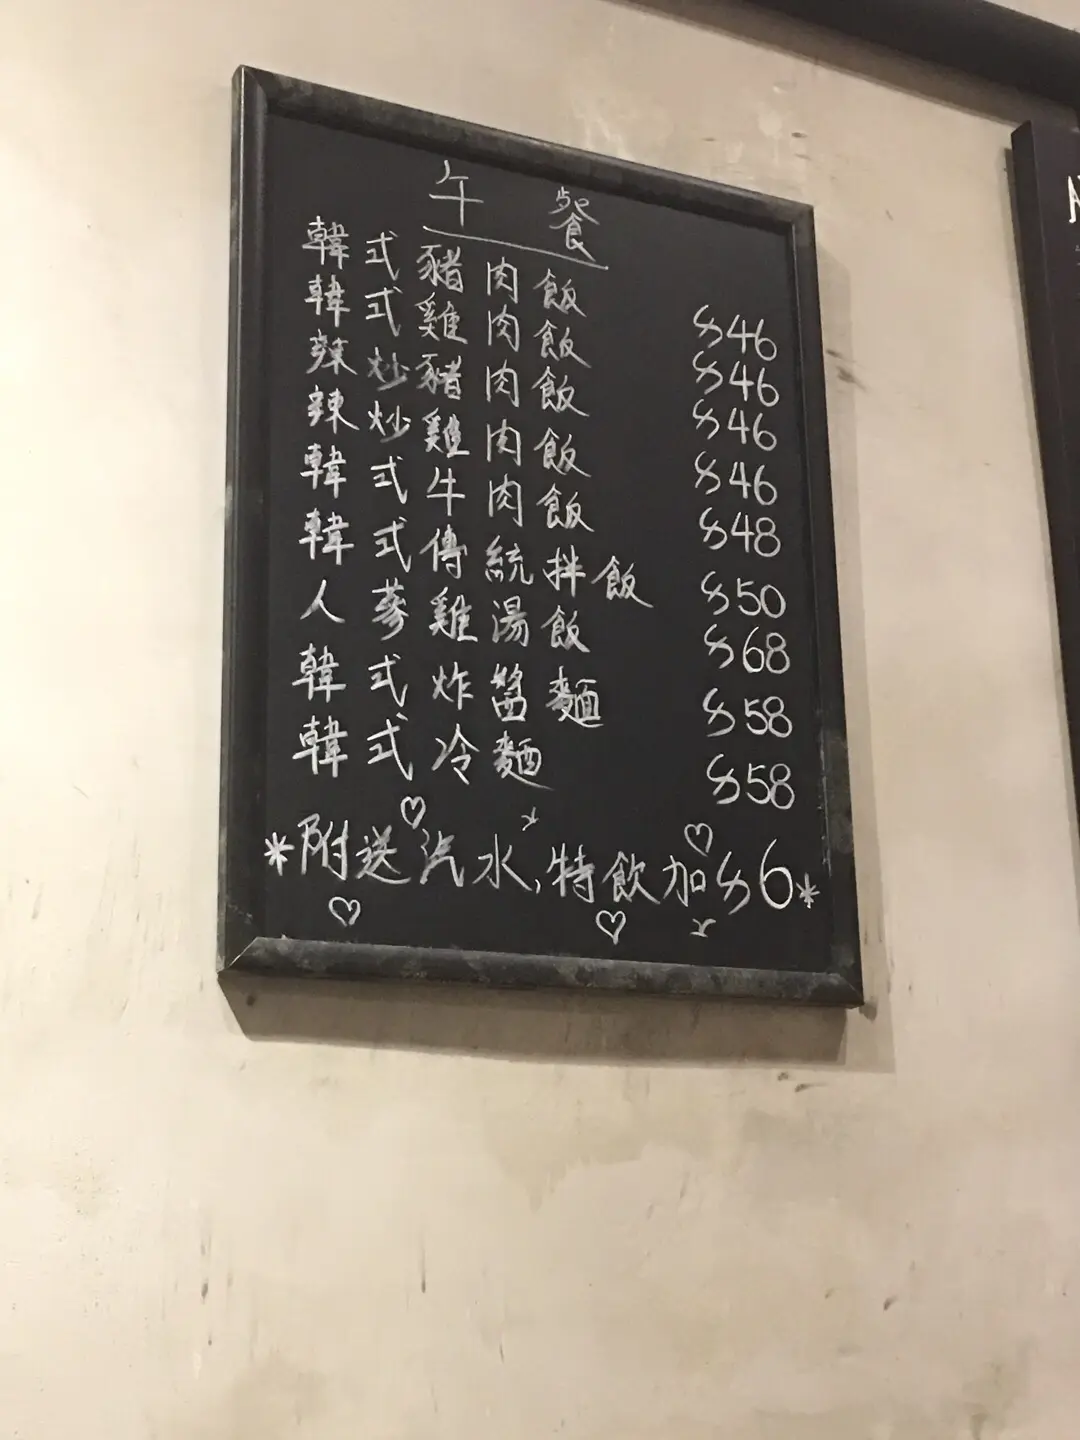 午 餐
韓式豬肉飯 $46
韓式雞肉飯 $46
辣炒豬肉飯 $46
辣炒雞肉飯 $46
韓式牛肉飯 $48
韓式傳統拌飯 $50
人蔘雞湯飯 $68
韓式炸醬麵 $58
韓式冷麵 $58
*附送汽水,特飲加$6*